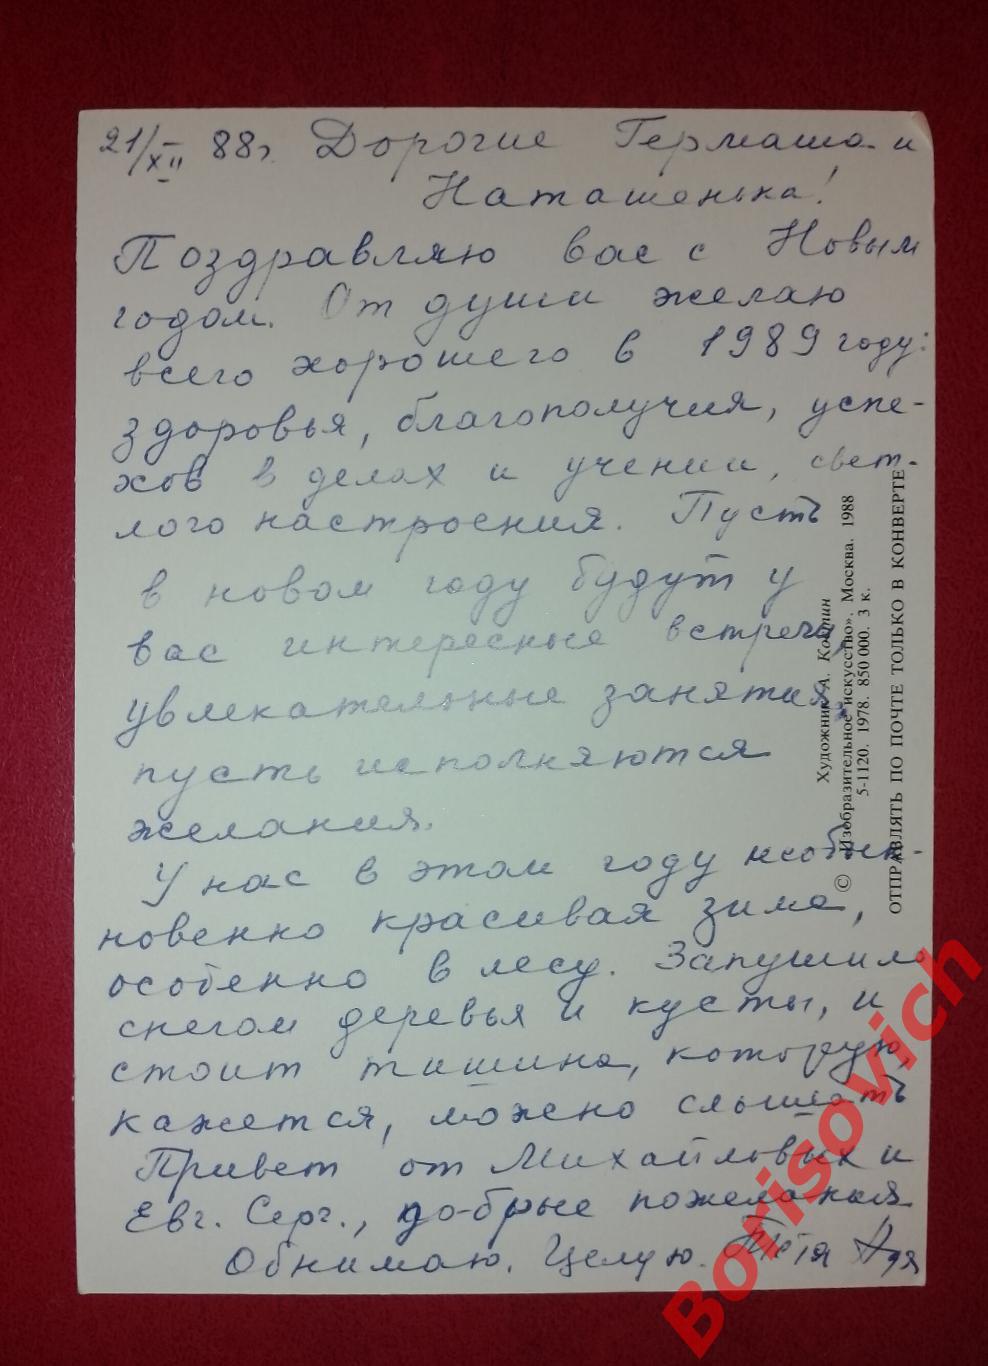 21/XII 88г. Дорогие Гермаша и
Наташенька!
Поздравляю вас с Новым
годом. От души желаю
всего хорошего в 1989 году:
здоровья, благополучия, успе-
хов в делах и учении, свет-
лого настроения. Пусть
в новом году будут у
вас интересные встречи,
увлекательные занятия,
пусть исполняются
желания.
У нас в этом году необык-
новенно красивая зима,
особенно в лесу. Запушило
снегом деревья и кусты, и
стоит тишина, которую,
кажется, можно слышать
Привет от Михайловых и
Евг. Серг., добрые пожелания
Обнимаю. Целую. Тётя Адя
Художник А. Костин
© «Изобразительное искусство». Москва. 1988
5-1120. 1978. 850 000. 3 к.
ОТПРАВЛЯТЬ ПО ПОЧТЕ ТОЛЬКО В КОНВЕРТЕ
Borisovich